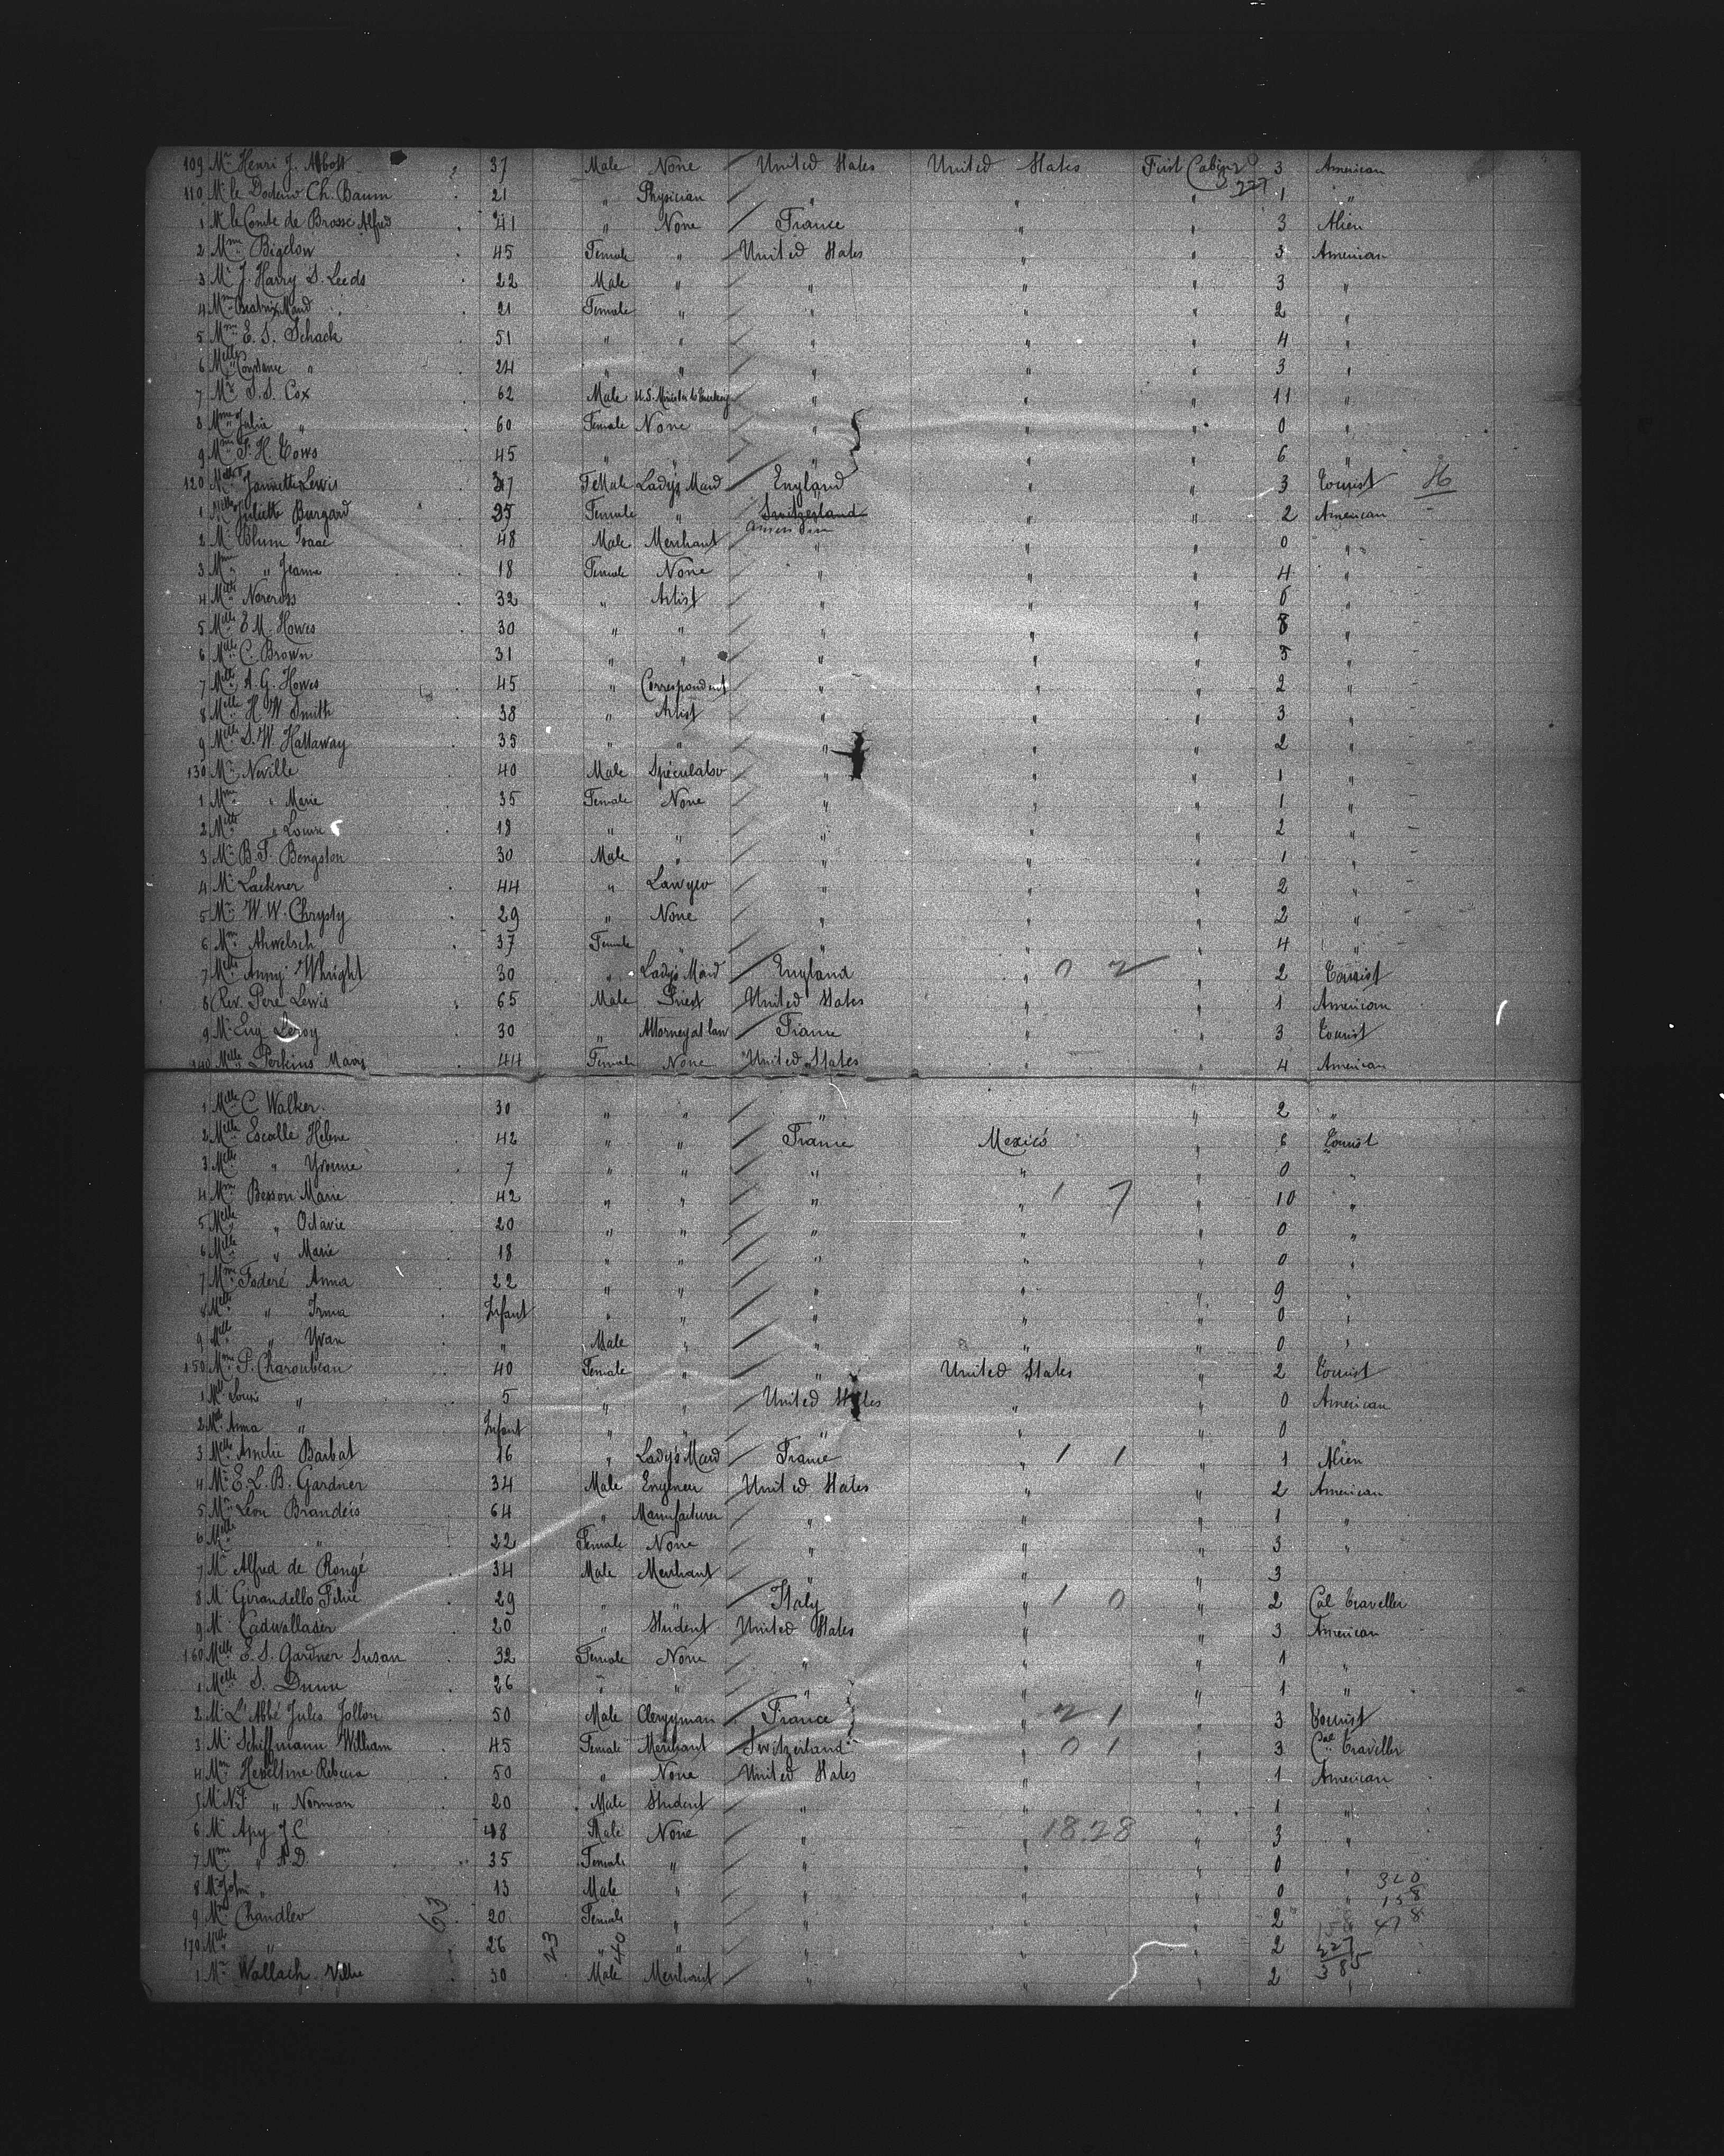 109 Mr Henri J. Abbott 37 Male None United States United States First Cabin 3 American
227
110 Mr le Docteur Ch. Baum 21 " Physician " " " 1 "
1 Mr le Comte de Brosse Alfred 41 " None France " " 3 Alien
2 Mme Bigelow 45 Female " United States " " 3 American
3 Mr J. Harry S. Leeds 22 Male " " " " 3 "
4 Mme Beatrix Maud 21 Female " " " " 2 "
5 Mme E. S. Schack 51 " " " " " 4 "
6 Melle Constance " 24 " " " " " 3 "
7 Mr S. S. Cox 62 Male U.S. Minister to Turkey " " " 11 "
8 Mme Julia " 60 Female None " " " 0 "
9 Mme T. H. Cows 45 " " " " " 6 "
120 Melle Jannette Lewis 37 Female Lady's Maid England " " 3 Tourist H
1 Melle Juliette Burgard 25 Female " Switzerland " " 2 American
American
2 Mr Blum Isaac 48 Male Merchant " " " 0 "
3 Mme " Jeanne 18 Female None " " " 4 "
4 Melle Norcross 32 " Artist " " " 6 "
5 Melle E. M. Howes 30 " " " " " 8 "
6 Melle C. Brown 31 " " " " " 5 "
7 Melle A. G. Howes 45 " Correspondent " " " 2 "
8 Melle H. W. Smith 38 " Artist " " " 3 "
9 Melle S. W. Hattaway 35 " " " " " 2 "
130 Mr Neville 40 Male Speculator " " " 1 "
1 Mme " Marie 35 Female None " " " 1 "
2 Melle " Louise 18 " " " " " 2 "
3 Mr B. T. Bengston 30 Male " " " " 1 "
4 Mr Lackner 44 " Lawyer " " " 2 "
5 Mr W. W. Chrysty 29 " None " " " 2 "
6 Mme Ahwelsch 37 Female " " " " 4 "
7 Melle Anny Whright 30 " Lady's Maid England " 0 2 " 2 Tourist
8 Rev. Pere Lewis 65 Male Priest United States " " 1 American
9 Mr Eug Leroy 30 " Attorney at law France " " 3 Tourist
140 Melle Perkins Mary 44 Female None United States " " 4 American
1 Melle C. Walker 30 " " " " " 2 "
2 Melle Escalle Helene 42 " " France Mexico " 6 Tourist
3 Melle " Yvonne 7 " " " " " 0 "
4 Mme Besson Marie 42 " " " " 1 7 " 10 "
5 Melle " Octavie 20 " " " " " 0 "
6 Melle " Marie 18 " " " " " 0 "
7 Mme Foderé Anna 22 " " " " " 9 "
8 Melle " Irma Infant " " " " " 0 "
9 Melle " Yvan " Male " " " " 0 "
150 Mme P. Charoubean 40 Female " " United States " 2 Tourist
1 Melle Louis " 5 " " United States " " 0 American
2 Melle Anna " Infant " " " " " 0
3 Melle Amelie Barbat 16 " Lady's Maid France " 1 1 " 1 Alien
4 Mr E. L. B. Gardner 34 Male Engineer United States " " 2 American
5 Mr Leon Brandeis 64 " Manufacturer " " " 1 "
6 Melle " 22 Female None " " " 3 "
7 Mr Alfred de Rongé 34 Male Merchant " " " 3
8 Mr Girandello 29 " " Italy " 1 0 " 2 Cal Traveller
9 Mr Cadwallader 20 " Student United States " " 3 American
160 Melle E. S. Gardner Susan 32 Female None " " " 1 "
1 Melle S. Dunn 26 " " " " " 1 "
2 Mr L'Abbé Jules Jollon 50 Male Clergyman France " 2 1 " 3 Tourist
3 Mr Schiffmann William 45 Female Merchant Switzerland " 0 1 " 3 Cal Traveller
4 Mme Heseltine Rebecca 50 " None United States " " 1 American
5 Mr N.T. " Norman 20 Male Student " " " 1 "
6 Mr Apy J C 48 Male None " " 18.28 " 3 "
7 Mme " A D. 35 Female " " " " 0 "
8 Mr John " 13 Male " " " " 0 "
320
158
478
9 Mme Chandler 20 Female " " " " 2
63 23 40
170 Melle " 26 " " " " " 2
227
385
1 Mr Wallach 30 Male Merchant " " " 2 "